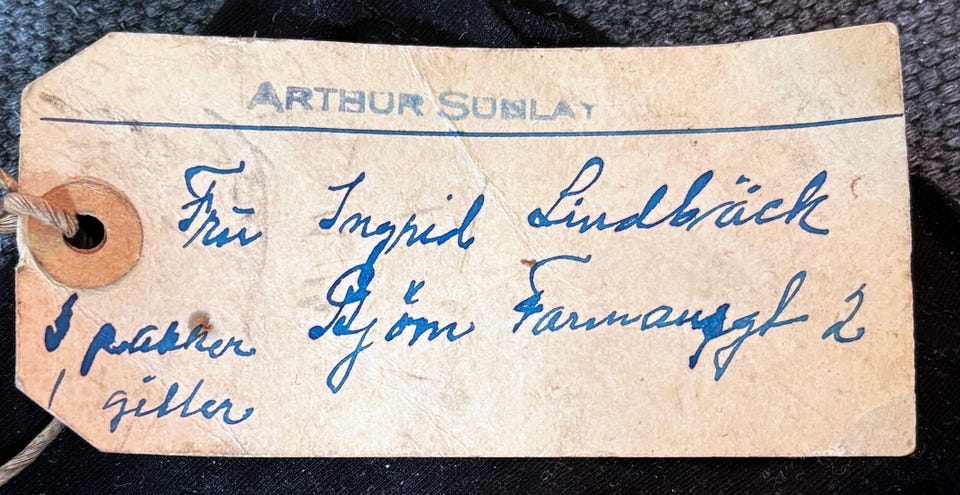 ARTHUR SUNLAY
Fru Ingrid Lindbäck
Björn Farmansgt 2
pakker
1